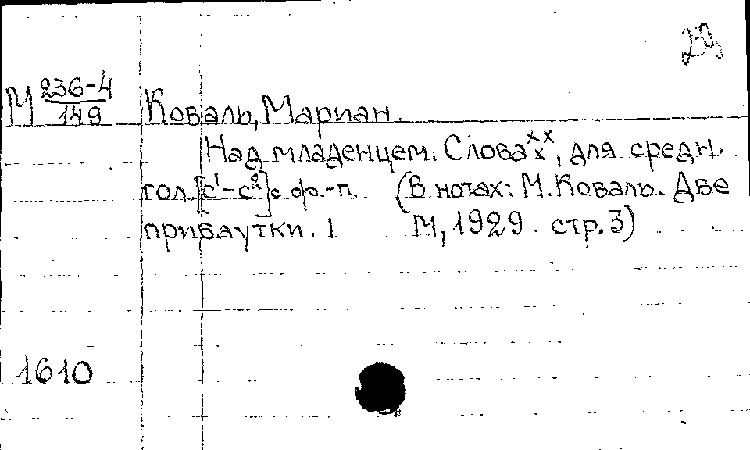 29
М 236-4/149 Коваль, Мариан.
Над младенцем. Слова xxx, для средн.
гол. [c¹-c²] с фр.-п. (В нотах: М. Коваль. Две
прибаутки. 1 М, 1929. стр. 3)
1610